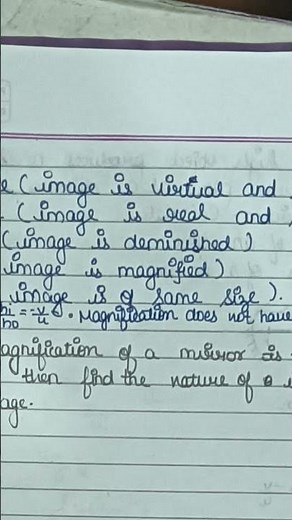 e (image is virtual and
. (image is real and
(image is deminished)
image is magnified)
image is of same size).
hi/ho = -v/u . Magnification does not have
agnification of a mirror is
then find the nature of
age.